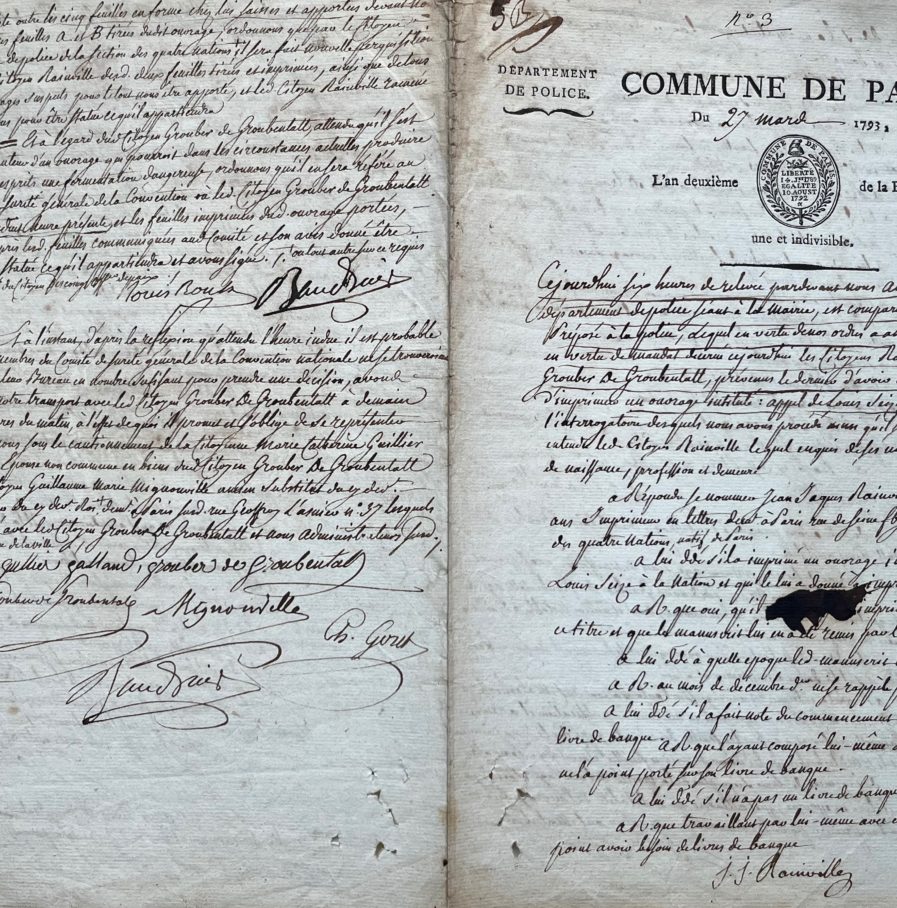 outre les cinq feuilles en forme chez lui saisies et apportées devant no
feuilles A et B tirées dudit ouvrage, ordonnons que par le Citoyen
de police de la section des quatre Nations il sera fait nouvelle perquisition
Citoyen Rainville desd. deux feuilles tirées et imprimées, ainsi que de tous
suspects pour le tout nous être apporté, et led Citoyen Rainville ramené
pour être statué ce qu'il appartiendra
Et à l'égard dud Citoyen Grouber de Groubentall, attendu qu'il est
auteur d'un ouvrage qui pourroit dans les circonstances actuelles produire
esprits une fermentation dangereuse, ordonnons qu'il en sera référé au
sureté générale de la Convention où led. Citoyen Grouber de Groubentall
heure présente, et les feuilles imprimées dud. ouvrage portées,
lesd. feuilles communiquées aud Comité et son avis donné être
statué ce qu'il appartiendra et avons signé.
Louis Roux Baudrais
à l'instant, d'après la réflexion qu'attendu l'heure indue il est probable
membres du Comité de sureté générale de la Convention nationale ne se trouveroient
Bureau en nombre suffisant pour prendre une décision, avons
notre transport avec led Citoyen Grouber De Groubentall à demain
du matin, à l'effet de quoi il promet et s'oblige de se représenter
sous le cautionnement de la Citoyenne Marie Catherine Guillier
Epouse non commune en biens dud Citoyen Grouber De Groubentall
Guillaume Marie Mignonville ancien substitut du cy dev.
à Paris susd. rue Geoffroy Lasnier n° 37 lesquels
avec led Citoyen Grouber De Groubentall et nous Administrateurs susd.
de la ville
guillier galland, grouber de groubental
Mignonville
Ch. Goret
Baudrais
5 B
n° 3
DÉPARTEMENT
DE POLICE.
COMMUNE DE PA
Du 27 mars 1793,
COMMUNE DE PARIS
LIBERTÉ
14 JUI. 1789
EGALITÉ
10 AOUST
1792
L'an deuxième de la R
une et indivisible.
Cejourdhui six heures de relevée pardevant nous A
département de police séant à la mairie, est compar
Préposé à la police, lequel en vertu de nos ordres a a
en vertu de mandat décerné cejourdhui les Citoyens Ra
Grouber De Groubentall, prévenus le dernier d'avoir
d'imprimer un ouvrage intitulé : appel de Louis Seiz
l'interrogatoire desquels nous avons procédé ainsi qu'il
entendu led Citoyen Rainville lequel enquis de ses no
de naissance, profession et demeure
a Répondu se nommer Jean Jaques Rainv
ans Imprimeur en lettres demt à Paris rue de Seine
des quatre Nations, natif de Paris
a lui ddé s'il a imprimé un ouvrage i
Louis Seize à la Nation et qui le lui a donné a impri
a R. que oui, qu'il imprim
ce titre et que le manuscrit lui en a été remis par l
a lui ddé à quelle epoque led. manuscrit
a R. au mois de decembre der ne se rappèle p
a lui ddé s'il a fait note du commencement
livre de banque.
a R. que l'ayant composé lui-même
ne l'a point porté sur son livre de banque.
a lui ddé s'il n'a pas un livre de banque
a R. que travaillant par lui-même avec
point avoir besoin de livres de banque
j. j. Rainville